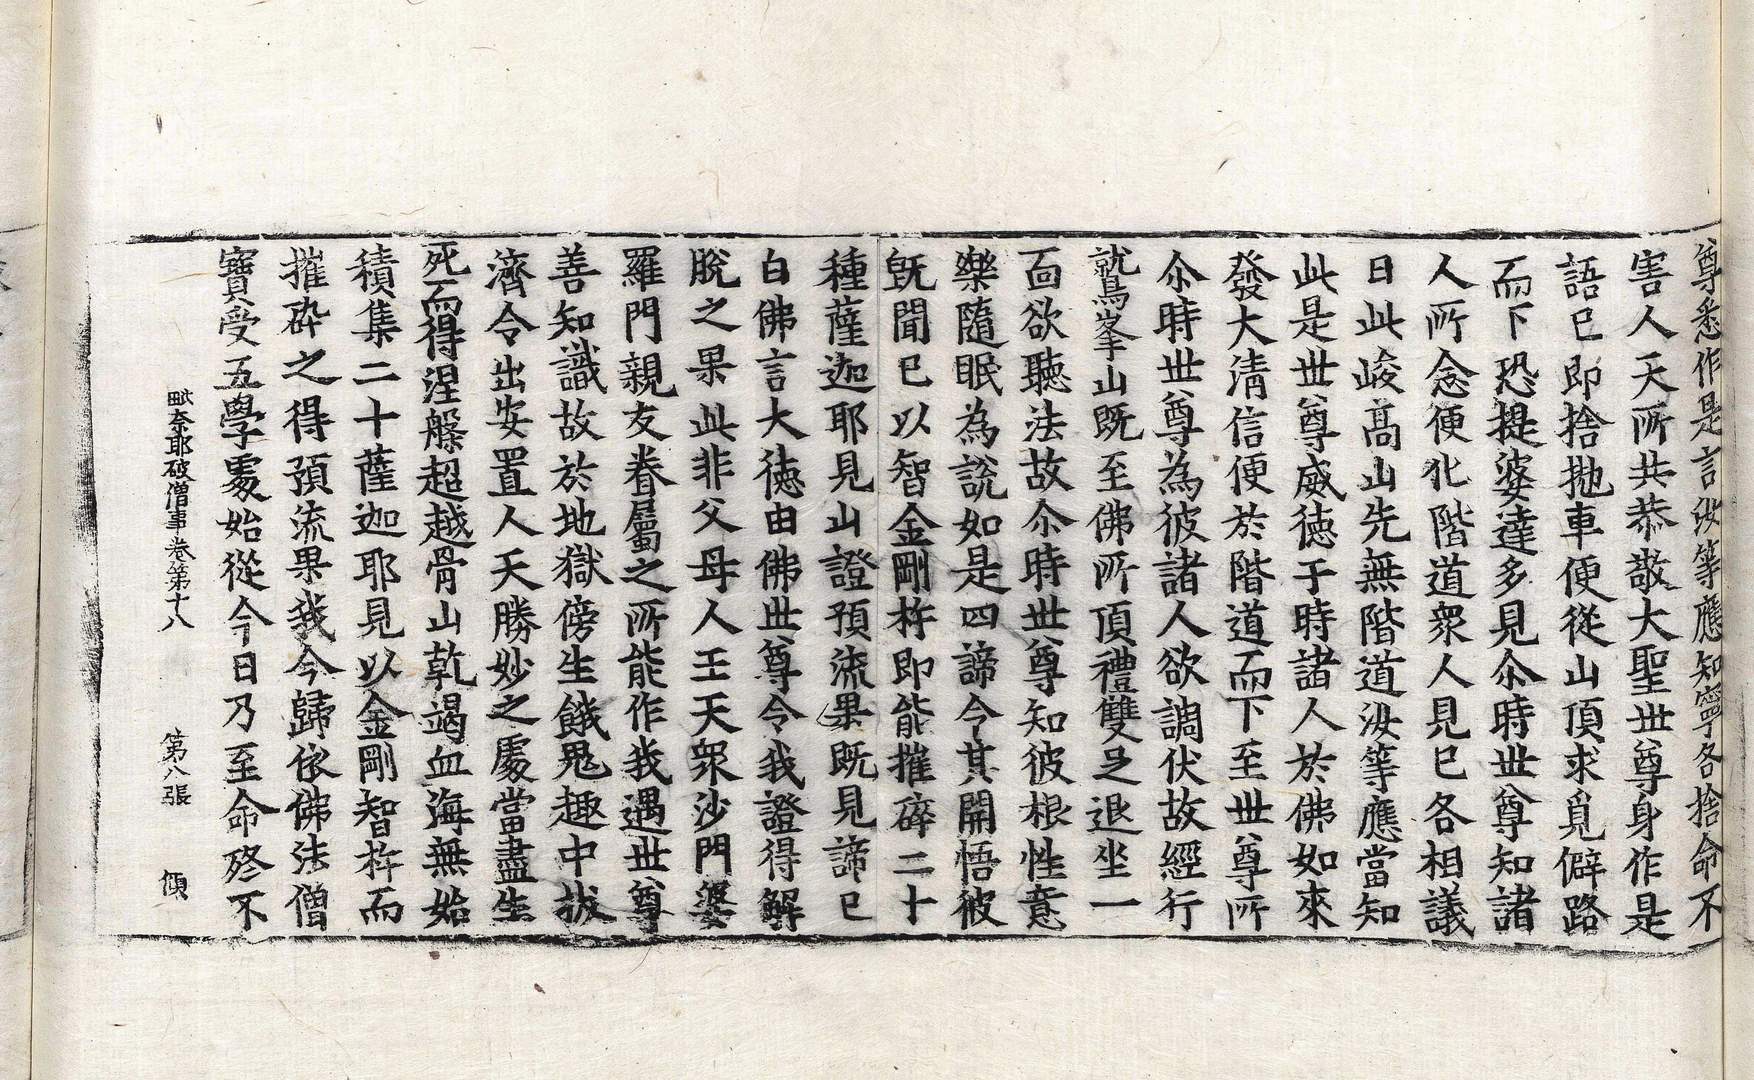 尊悉作是言汝等應知寧各捨命不
害人天所共恭敬大聖世尊身作是
語已即捨拋車便從山頂求覓僻路
而下恐提婆達多見尒時世尊知諸
人所念便化階道衆人見已各相議
日此峻高山先無階道汝等應當知
此是世尊威德于時諸人於佛如來
發大清信便於階道而下至世尊所
尒時世尊為彼諸人欲調伏故經行
鷲峯山既至佛所頂禮雙足退坐一
面欲聽法故尒時世尊知彼根性意
樂隨眠為說如是四諦令其開悟彼
旣聞已以智金剛杵即能摧碎二十
種薩迦耶見山證預流果既見諦已
白佛言大德由佛世尊令我證得解
脫之果此非父母人王天衆沙門婆
羅門親友眷屬之所能作我遇世尊
善知識故於地獄傍生餓鬼趣中拔
濟令出安置人天勝妙之處當盡生
死而得涅槃超越骨山乾竭血海無始
積集二十薩迦耶見以金剛智杵而
摧碎之得預流果我今歸依佛法僧
寶受五學處始從今日乃至命終不
毗奈耶破僧事卷第十八 第八張 傾